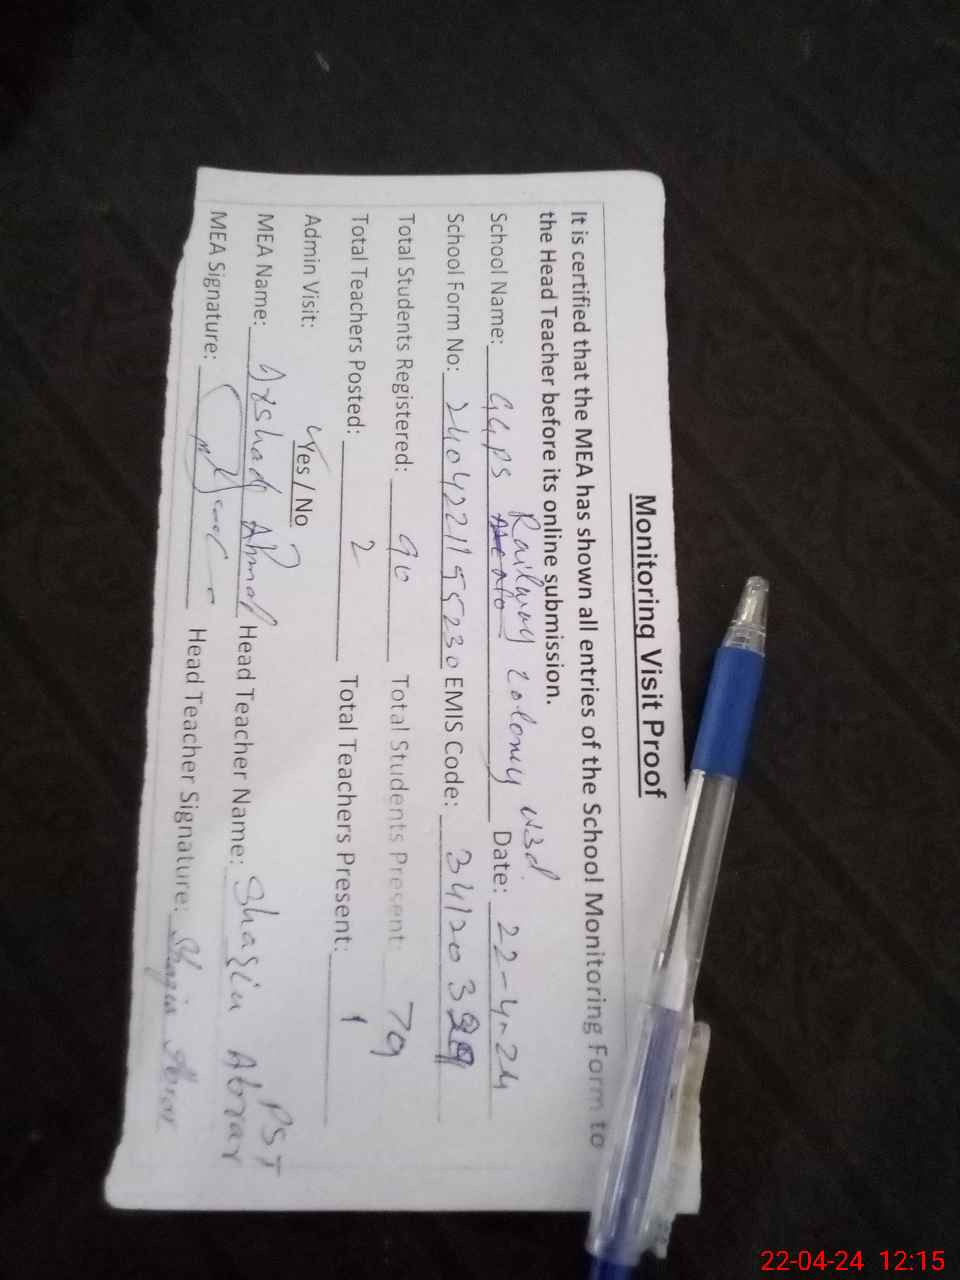 Monitoring Visit Proof
It is certified that the MEA has shown all entries of the School Monitoring Form to
the Head Teacher before its online submission.
School Name: GGPS Railway Colony Date: 22-4-24
School Form No: 24042211955230 EMIS Code: 341203
Total Students Registered: 90 Total Students Present: 79
Total Teachers Posted: 2 Total Teachers Present: 1
Admin Visit: Yes / No
MEA Name: Arshad Ahmad Head Teacher Name: Shazia Abrar PST
MEA Signature: Head Teacher Signature: Shazia Abrar
22-04-24 12:15